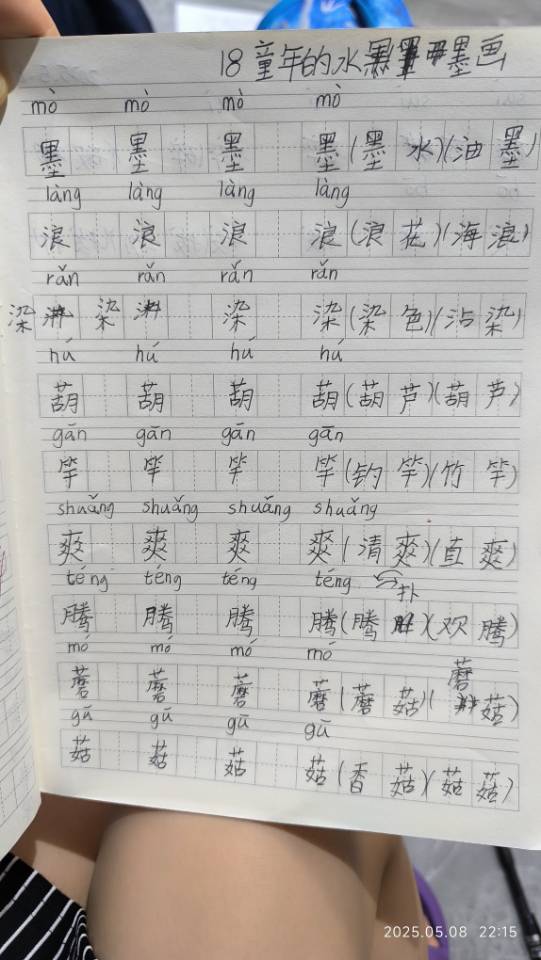 18 童年的水墨画
mò mò mò mò
墨 墨 墨 墨(墨水)(油墨)
làng làng làng làng
浪 浪 浪 浪(浪花)(海浪)
rǎn rǎn rǎn rǎn
染 染 染 染(染色)(沾染)
hú hú hú hú
葫 葫 葫 葫(葫芦)(葫芦)
gān gān gān gān
竿 竿 竿 竿(钓竿)(竹竿)
shuǎng shuǎng shuǎng shuǎng
爽 爽 爽 爽(清爽)(直爽)
téng téng téng téng
腾 腾 腾 腾(扑腾)(欢腾)
mó mó mó mó
蘑 蘑 蘑 蘑(蘑菇)(蘑菇)
gū gū gū gū
菇 菇 菇 菇(香菇)(菇菇)
2025.05.08 22:15